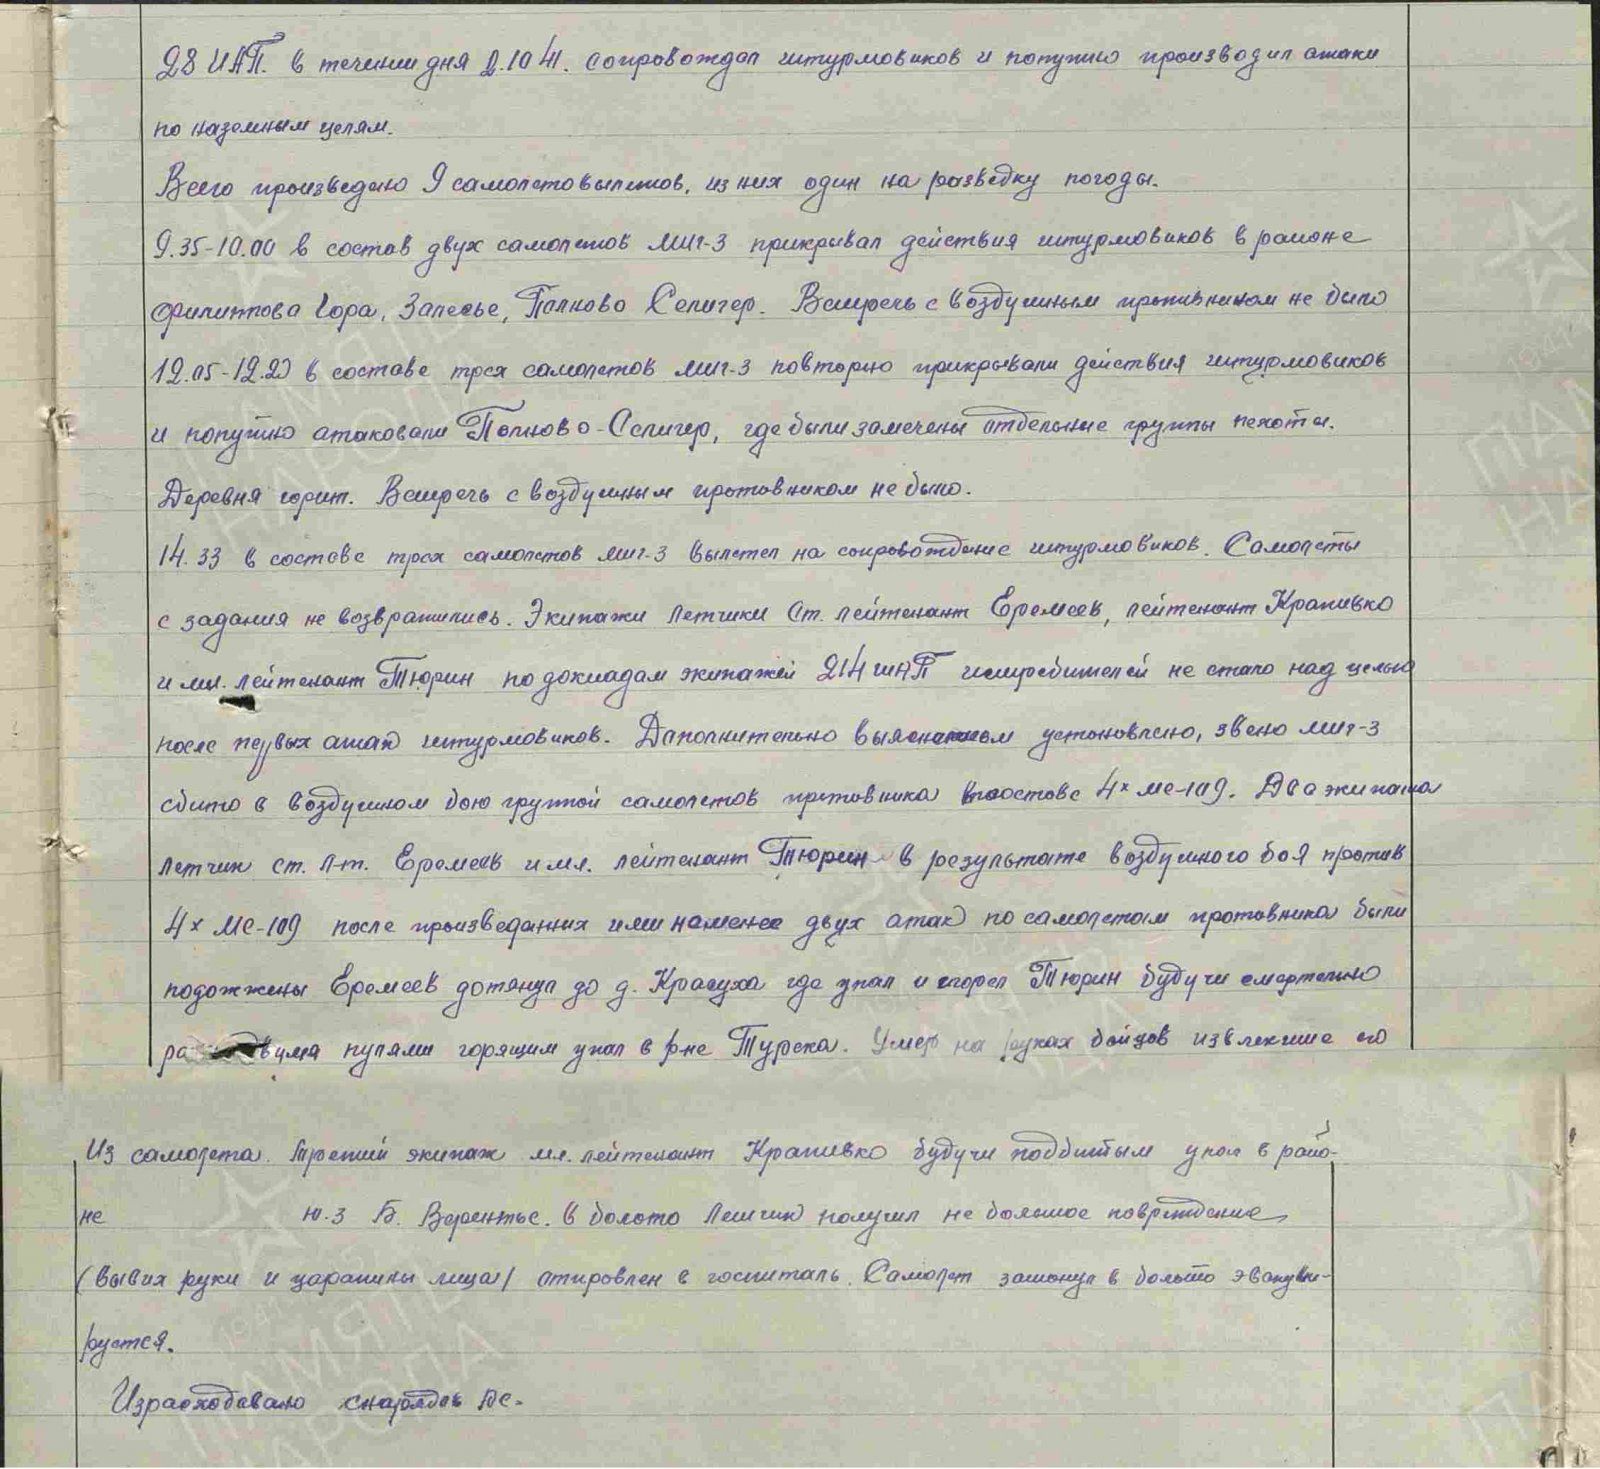 28 ИАП. в течении дня 2.10 41. сопровождал штурмовиков и попутно производил атаки
по наземным целям.
Всего произведено 9 самолетовылетов, из них один на разведку погоды.
9.35-10.00 в состав двух самолетов миг-3 прикрывал действия штурмовиков в районе
Филиппова Гора, Залесье, Полново Селигер. Встречь с воздушным противником не было
12.05-12.20 в составе трех самолетов миг-3 повторно прикрывали действия штурмовиков
и попутно атаковали Полново-Селигер, где были замечены отдельные группы пехоты.
Деревня горит. Встречь с воздушным противником не было.
14.33 в составе трех самолетов миг-3 вылетел на сопровождение штурмовиков. Самолеты
с задания не возвратились. Экипажи летчики Ст. лейтенант Еремеев, лейтенант Крапивко
и мл. лейтенант Тюрин по докладам экипажей 214 шАП истребителей не стало над целью
после первых атак штурмовиков. Дополнительно выяснением установлено, звено миг-3
сбито в воздушном бою группой самолетов противника в составе 4х ме-109. Два экипажа
летчик ст. л-т. Еремеев и мл. лейтенант Тюрин в результате воздушного боя против
4х МЕ-109 после произведенных ими наменее двух атак по самолетам противника были
подожжены Еремеев дотянул до д. Красуха где упал и сгорел Тюрин будучи смертельно
ра вумя пулями горящим упал в р-не Турска. Умер на руках бойцов извлекшие его
Из самолета. Третий экипаж мл. лейтенант Крапивко будучи подбитым упал в райо-
не ю.з Б. Веретье. в болото Летчик получил не большое повреждение
(вывих руки и царапины лица) отправлен в госпиталь. Самолет затонул в болото эвакуи-
руется.
Израсходовано снарядов РС.